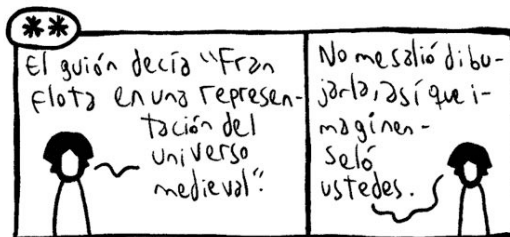 **
El guión decía "Fran
flota en una represen-
tación del
universo
medieval".
No me salió dibu-
jarla, así que i-
maginen-
seló
ustedes.